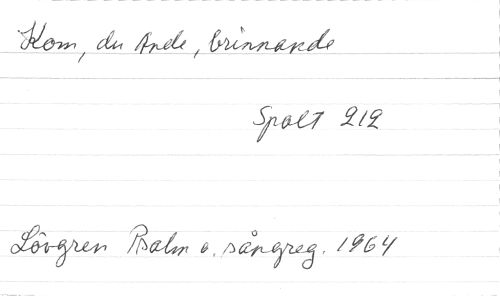 Kom, du Ande, brinnande
Spalt 212
Lövgren Psalm o. sångreg. 1964